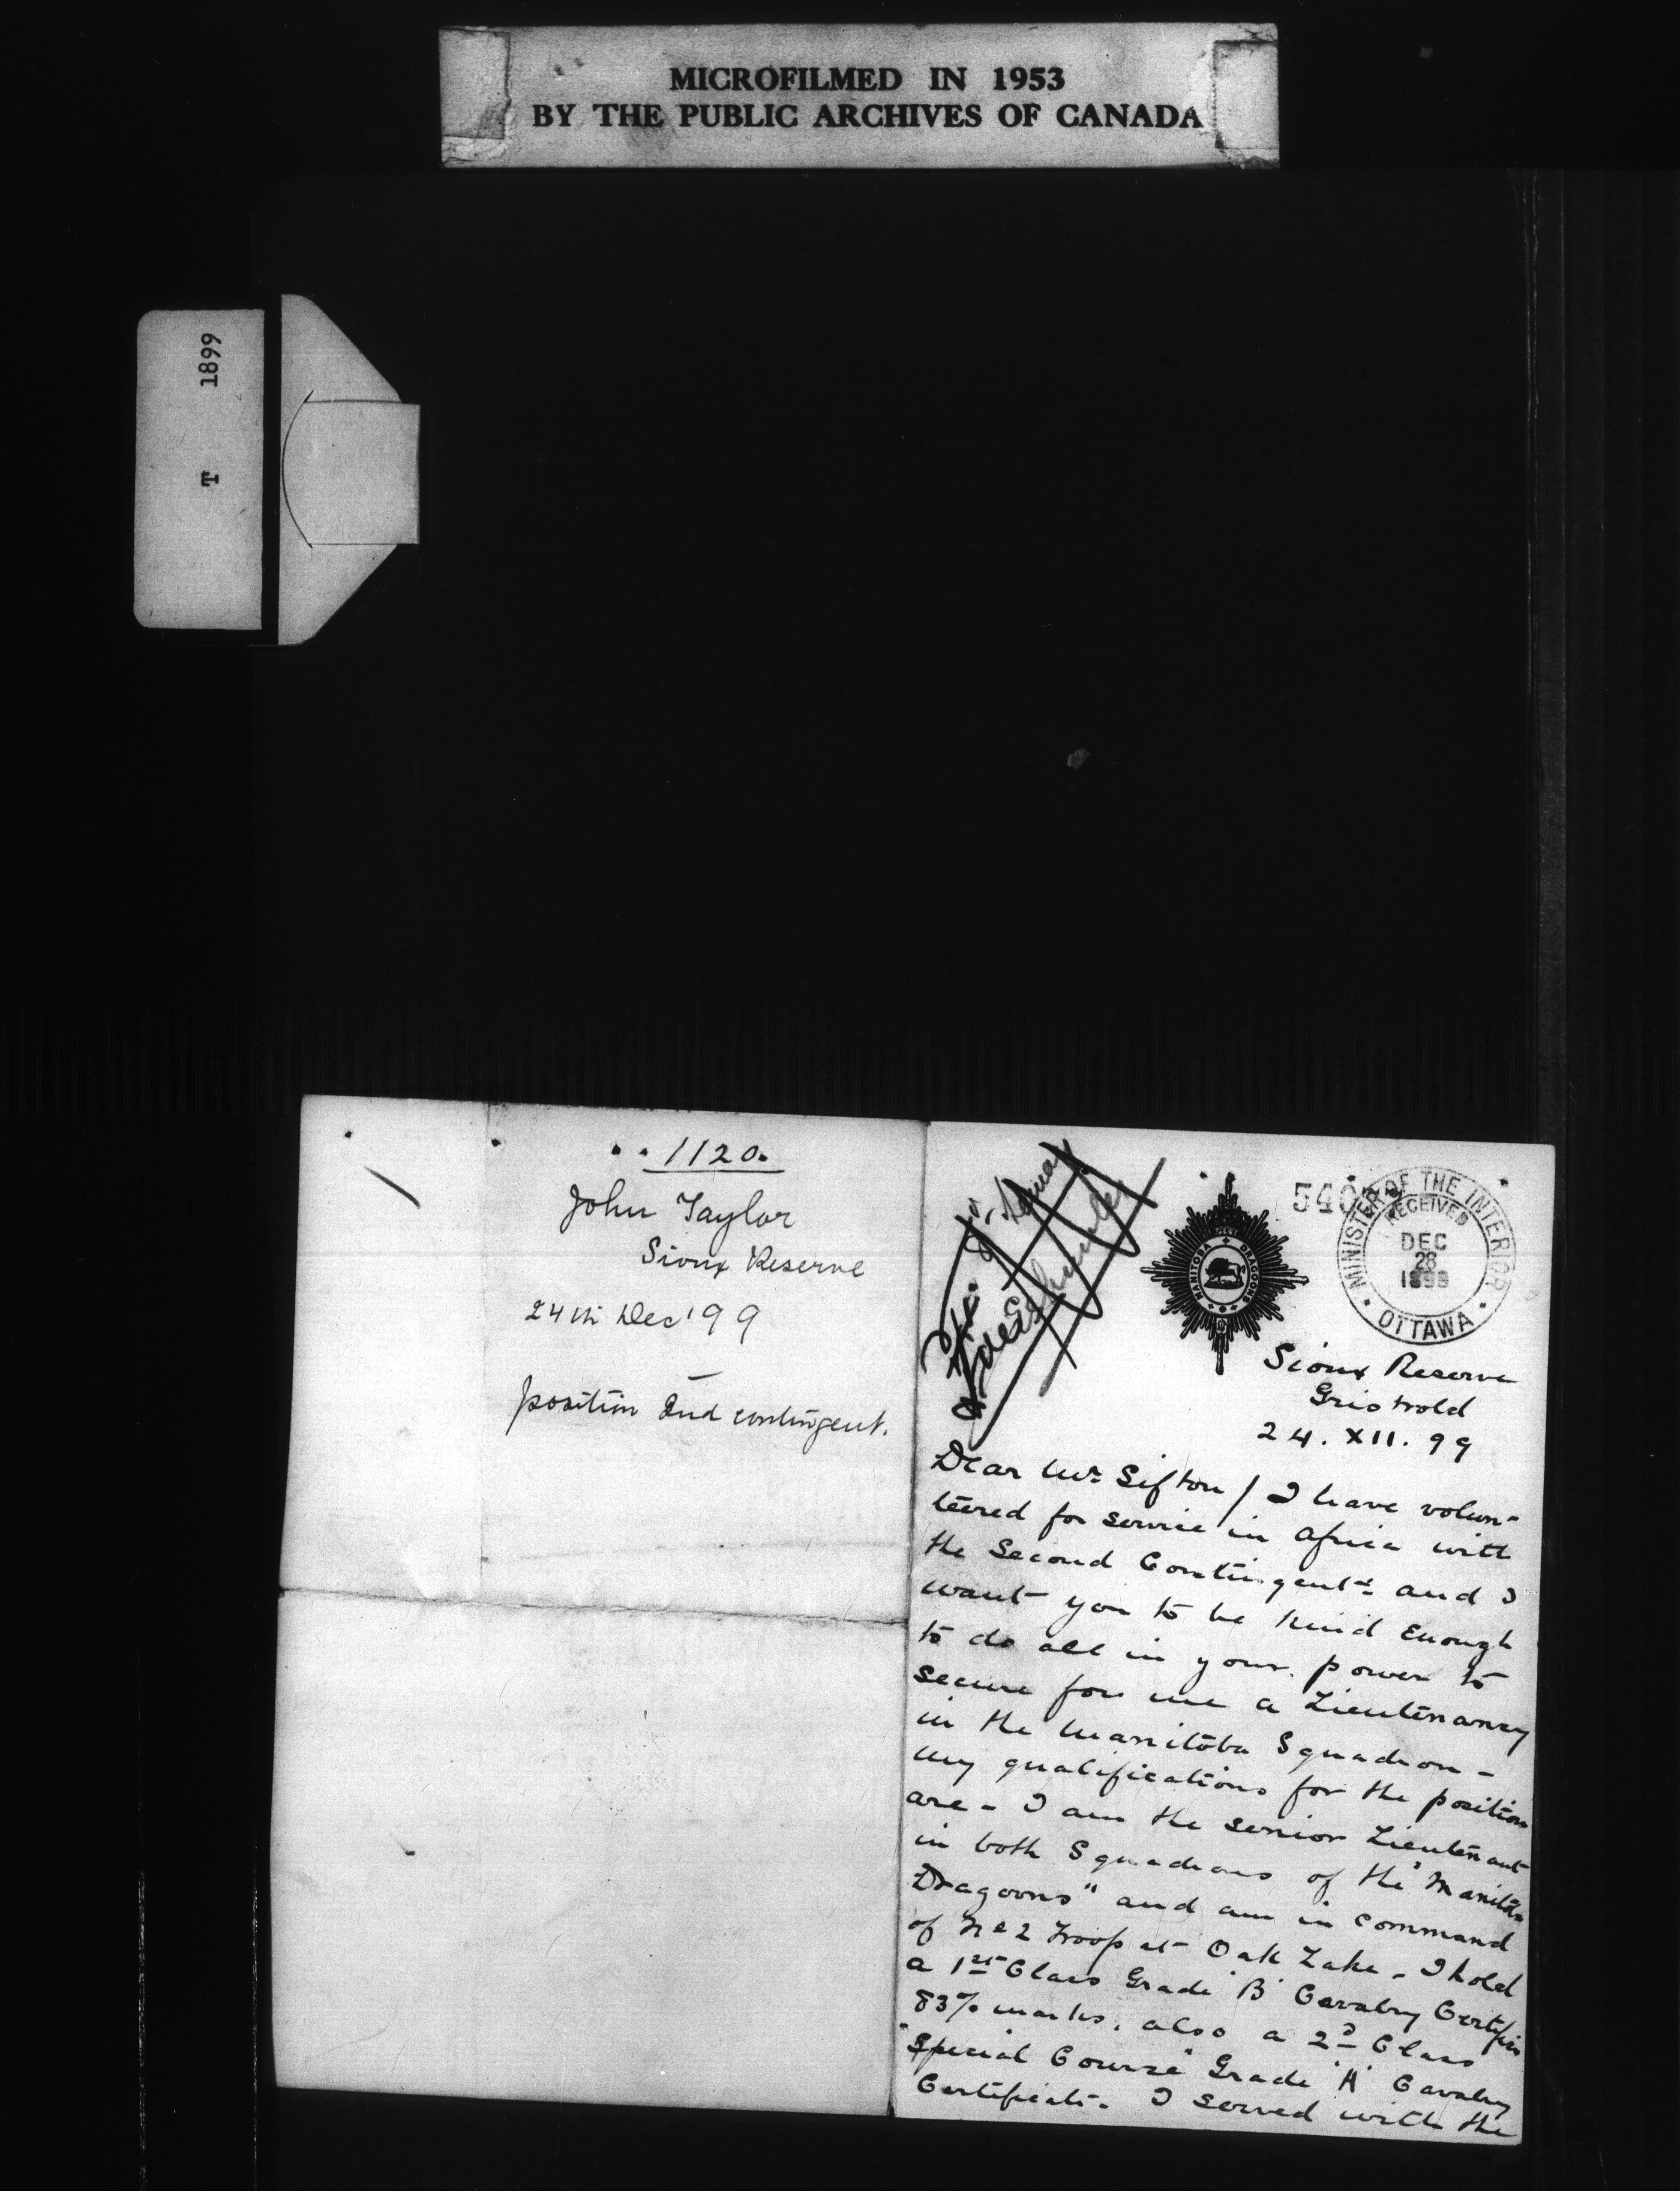 MICROFILMED IN 1953
BY THE PUBLIC ARCHIVES OF CANADA
T 1899
1120.
John Taylor
Sioux Reserve
24th Dec '99
position 2nd contingent.
540
MINISTER OF THE INTERIOR
RECEIVED
DEC
28
1899
OTTAWA
MANITOBA DRAGOONS
Sioux Reserve
Griswold
24. XII. 99
Dear Mr Sifton / I have volun-
teered for service in Africa with
the Second Contingent and I
want you to be kind Enough
to do all in your power to
secure for me a Lieutenancy
in the Manitoba Squadron -
my qualifications for the position
are - I am the senior Lieutenant
in both Squadrons of the "Manitoba
Dragoons" and am in command
of No 2 Troop at Oak Lake - I hold
a 1st Class Grade "B" Cavalry Certific
83% marks, also a 2d Class
"Special Course" Grade "A" Cavalry
Certificate. I served with the